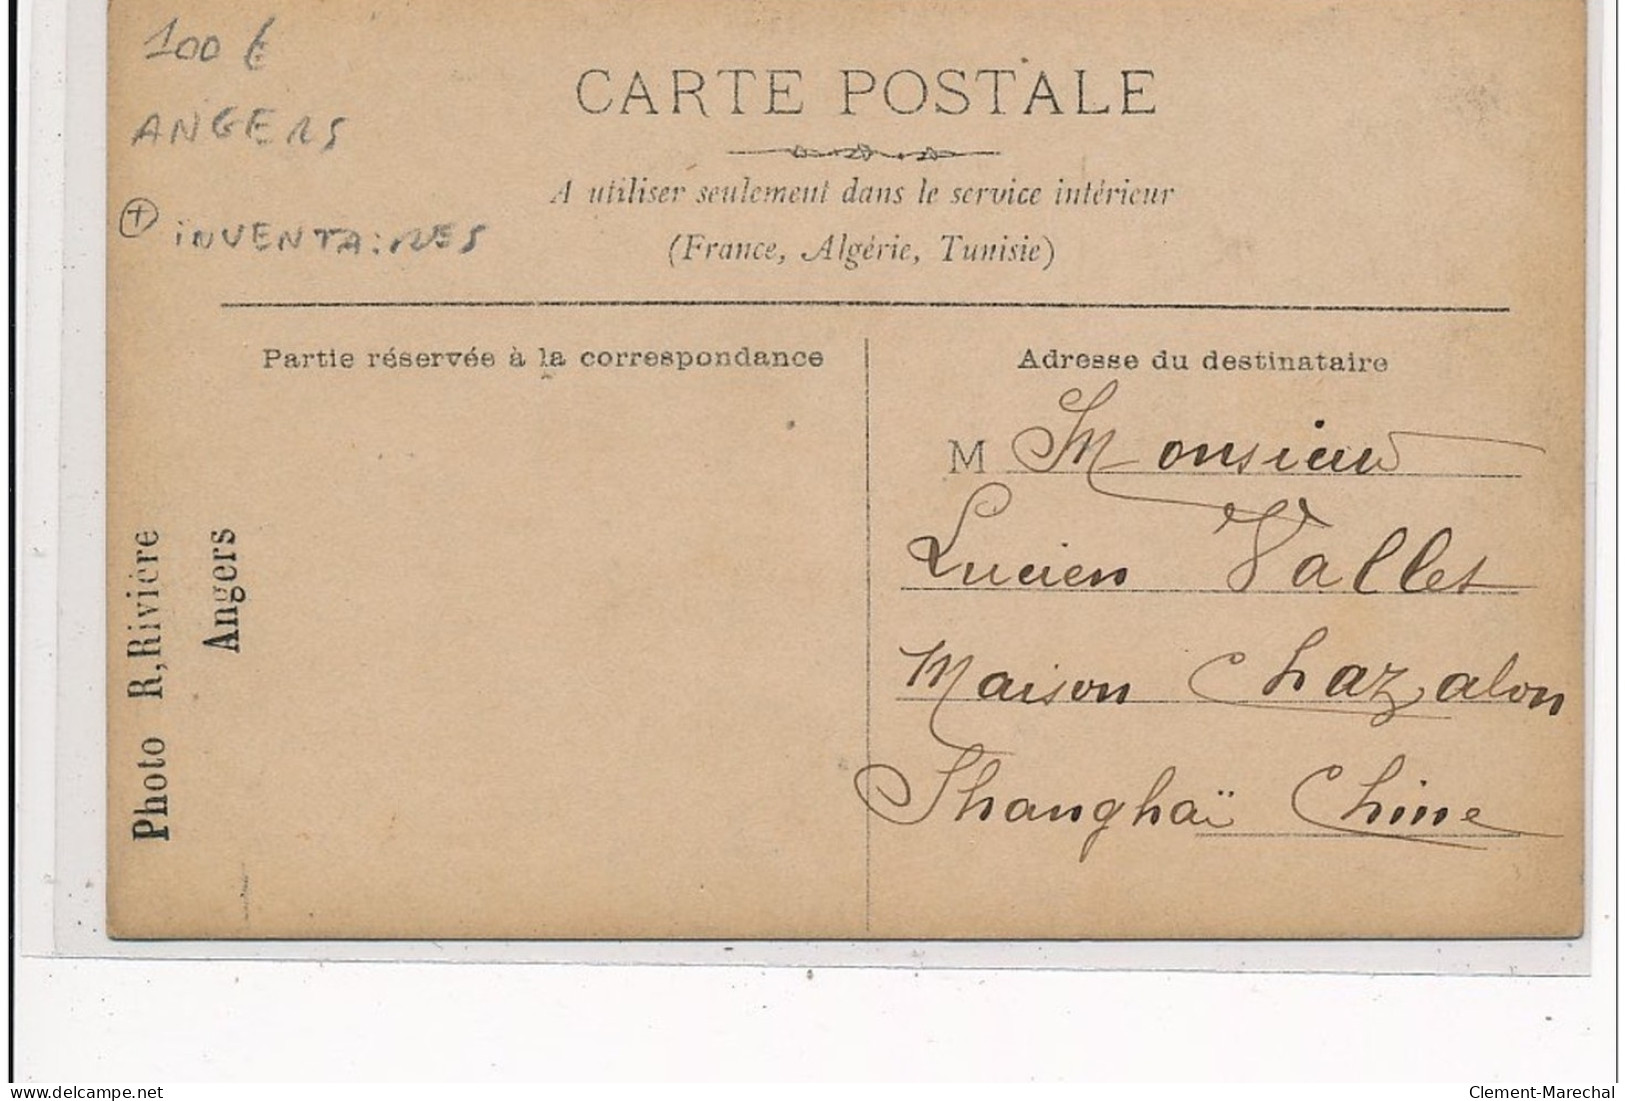 100 €
ANGERS
+ INVENTAIRES
CARTE POSTALE
A utiliser seulement dans le service intérieur
(France, Algérie, Tunisie)
Partie réservée à la correspondance
Adresse du destinataire
M Monsieur
Lucien Vallet
Maison Chazalon
Shanghaï Chine
Photo R, Rivière
Angers
delcampe.net
Clement-Marechal